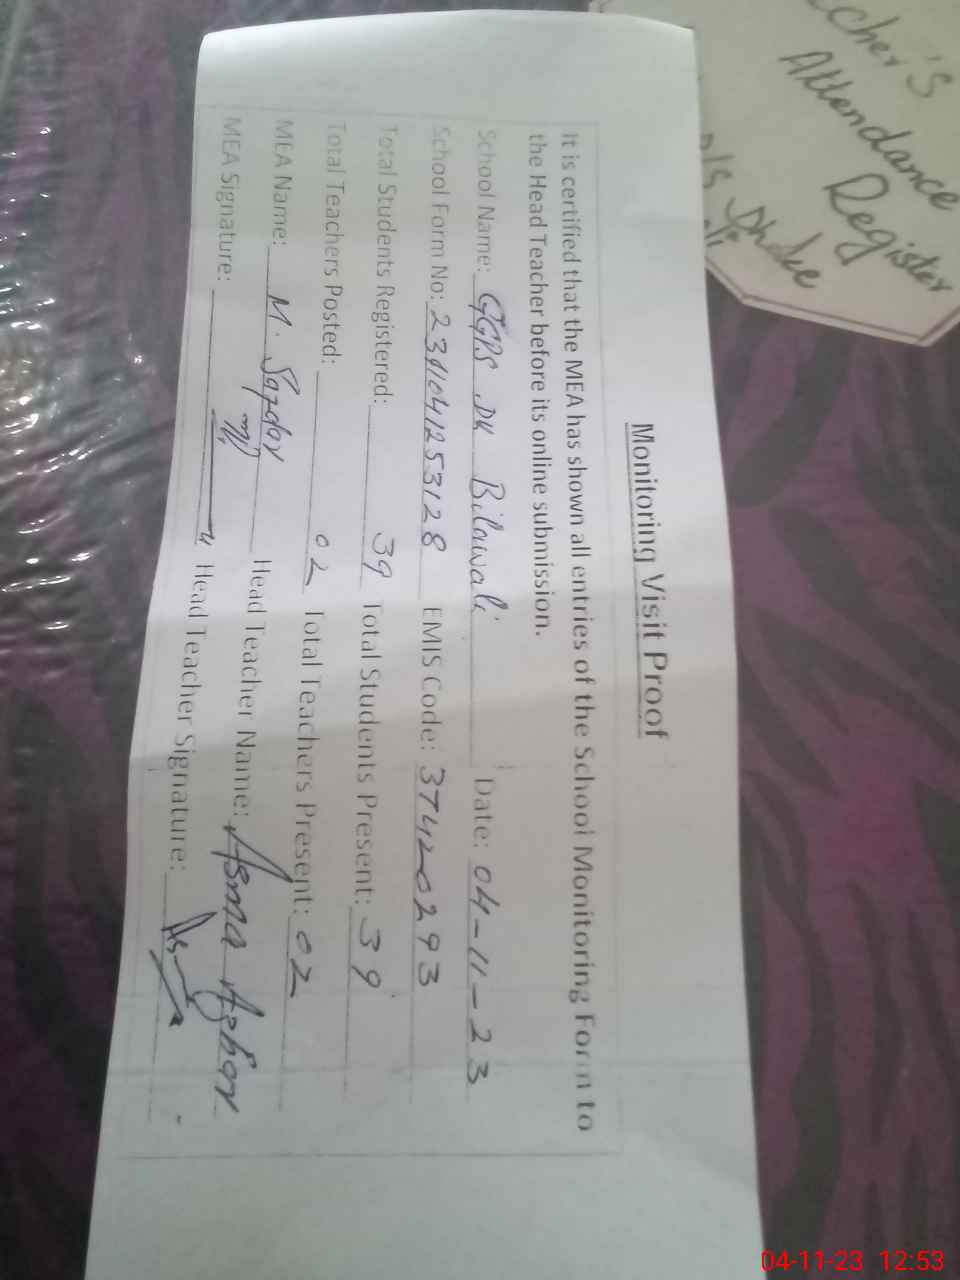 Monitoring Visit Proof
It is certified that the MEA has shown all entries of the School Monitoring Form to
the Head Teacher before its online submission.
School Name: GGPS DK Bilawali Date: 04-11-23
School Form No: 231041253128 EMIS Code: 37420293
Total Students Registered: 39 Total Students Present: 39
Total Teachers Posted: 02 Total Teachers Present: 02
MEA Name: M. Safdar Head Teacher Name: Asma Azhar
MEA Signature: Head Teacher Signature:
Attendance
Register
04-11-23 12:53